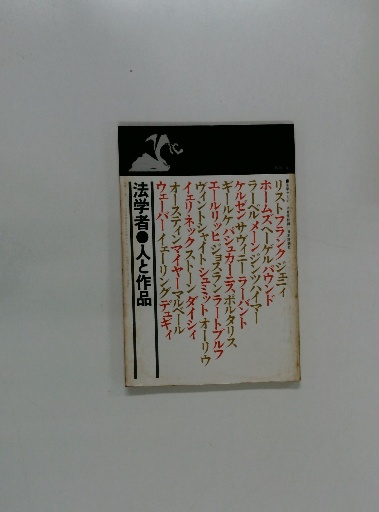 リスト フランク ジェニィ
ホームズ ヘーゲル パウンド
ラーベル メーン ジンツハイマー
ケルゼン サヴィニー ラーバント
ギールケ パシュカーニス ポルタリス
エールリッヒ ジョスラン ラートブルフ
ヴィントシャイト シュミット オーリウ
イェリネック ストーン ダイシィ
オースティン マイヤー マルベール
ウェーバー イェーリング デュギィ
法学者●人と作品